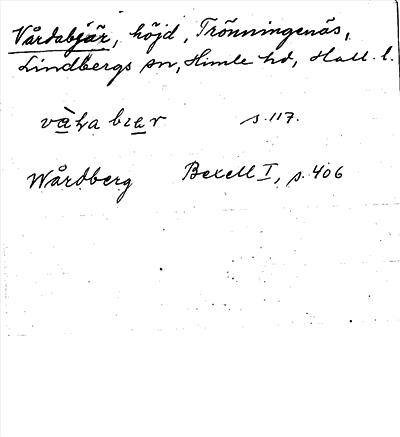 Vårdabjär, höjd, Trönningenäs,
Lindbergs sn, Himle hd, Hall. l.
s. 117.
Wårdberg Bexell I, s. 406